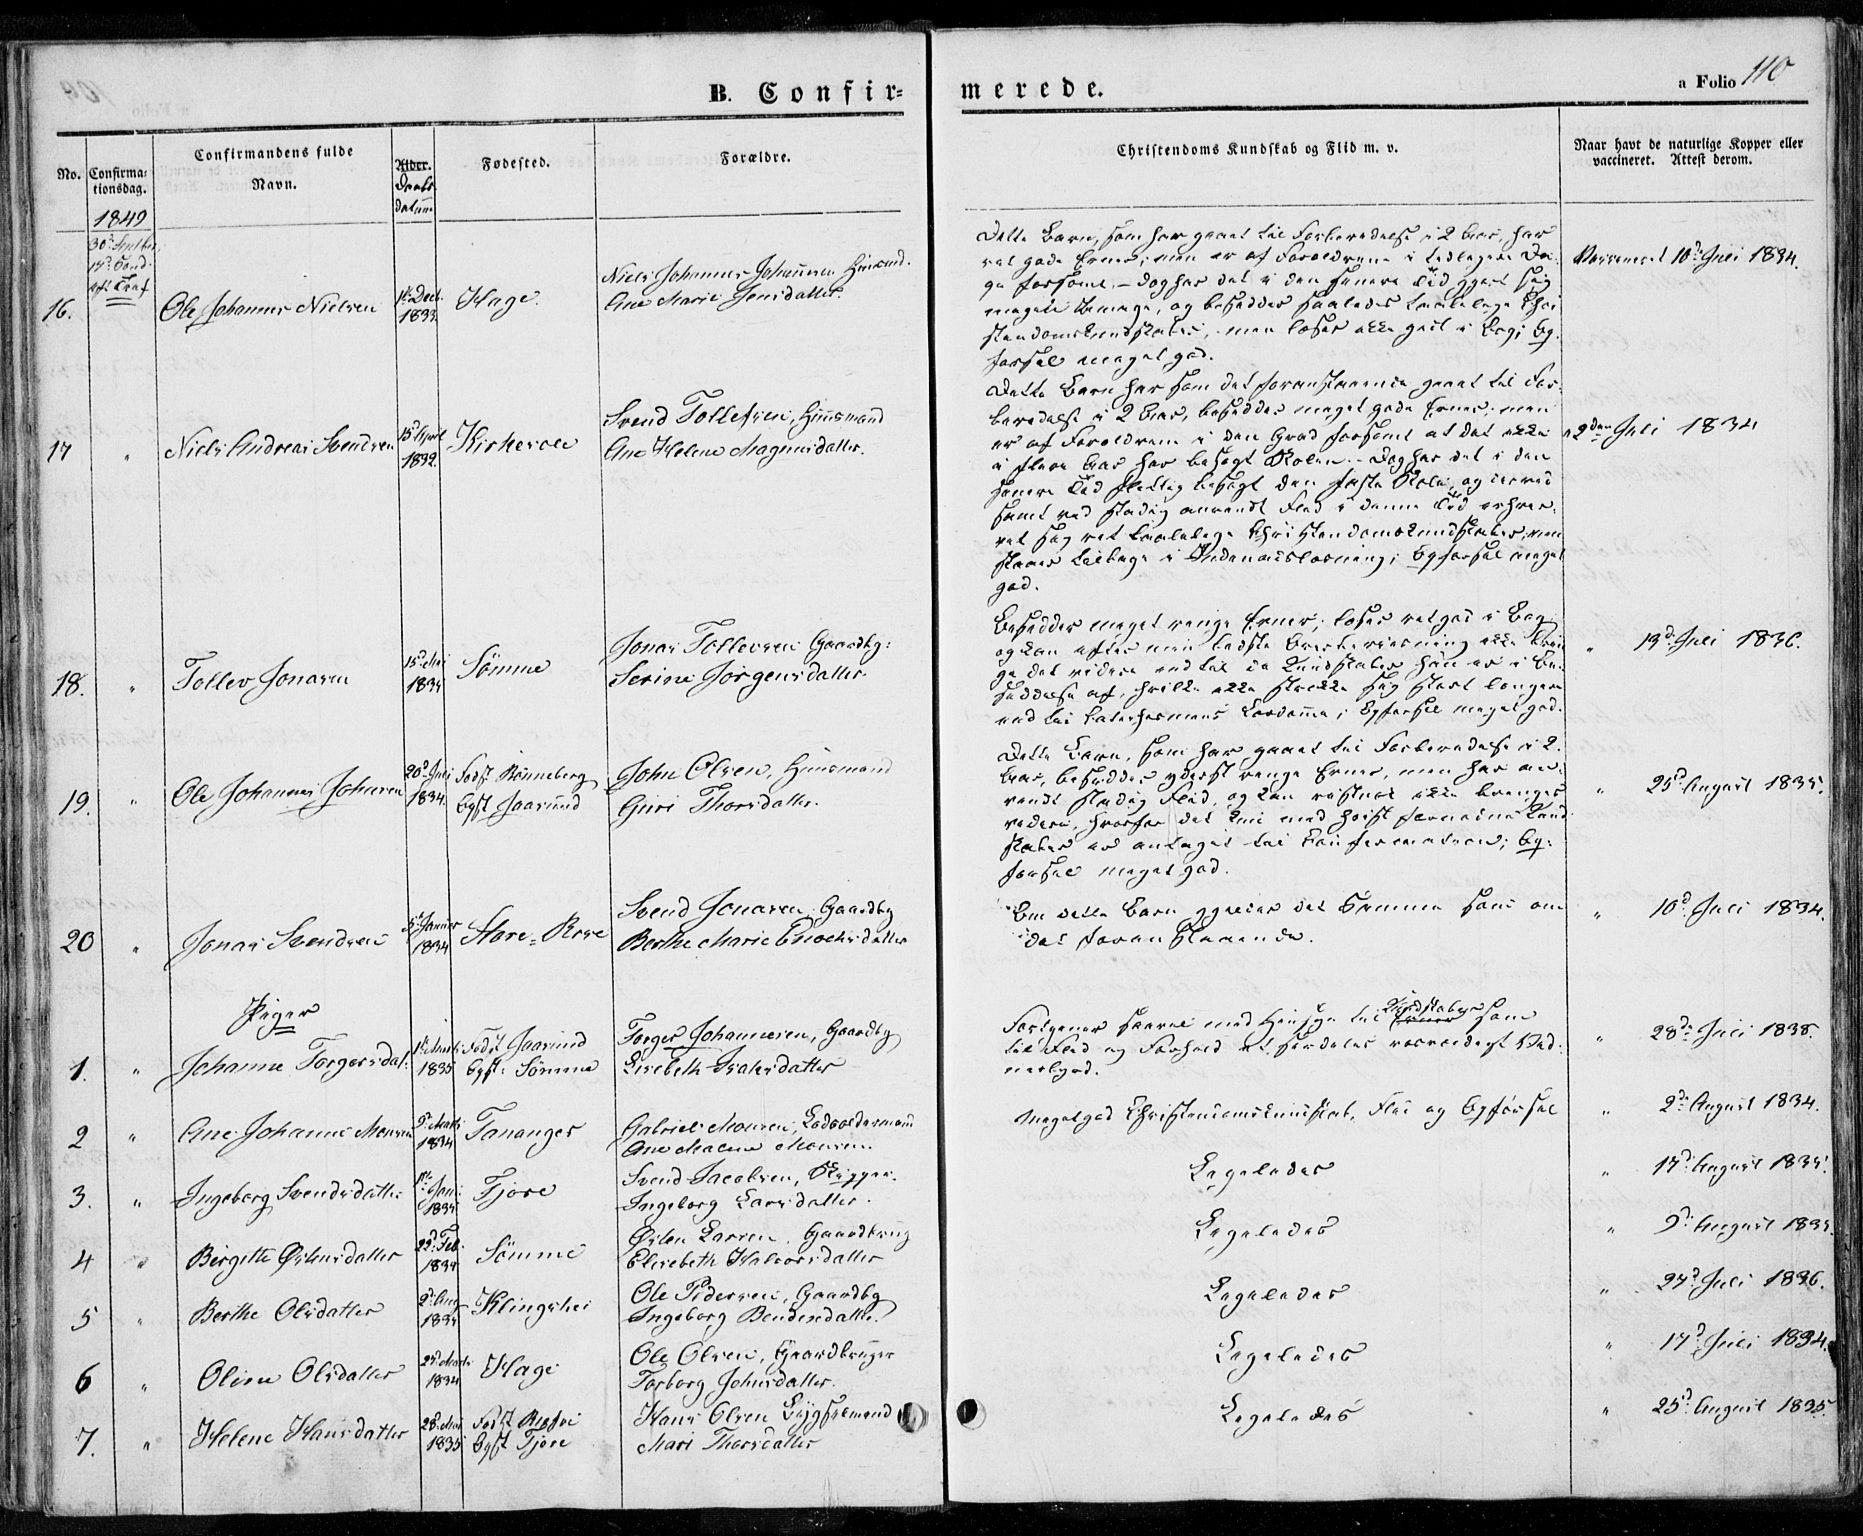 B. Confir=
merede.
a Folio 110
No.
Confirma=
tionsdag.
Confirmandens fulde
Navn.
Alder.
Daabs
datum
Fødested.
Forældre.
Christendoms Kundskab og Flid m. v.
Naar havt de naturlige Kopper eller
vaccineret. Attest derom.
1849
30d Septbr.
17d Sønd.
eft Tref
16.
Ole Johannes Nielsen
1t Dec.
1833.
Hage.
Niels Johannes Johannesen Huusmd.
Ane Marie Jensdatter.
Dette Barn, som har gaaet til Forberedelse i 2 Aar, har
ret gode Evner; men er af Forældrene i tidligere Da-
ge forsømt, – dog har det i den senere Tid gjort sig
megen Umage, og besidder saaledes taalelige Chri
stendomskundskaber, men læser ikke godt i Bog; Op-
førsel meget god.
Vaccineret 10de Juli 1834.
17
"
Niels Andreas Svendsen
15d April
1832.
Kirkevole
Svend Tollefsen, Huusmand
Ane Helene Magnusdatter.
Dette Barn har som det foranstaaende gaaet til For-
beredelse i 2 Aar, besidder meget gode Evner; men
er af Forældrene i den Grad forsømt at det ikke
i flere Aar har besøgt Skolen. – Dog har det i den
senere Tid flittig besøgt den faste Skole, og derved
samt ved stadig anvendt Flid i denne Tid erhver-
vet sig ret taalelige Christendomskundskaber, men
staaer tilbage i Indenadslæsning; Opførsel meget
god.
" 2den Juli 1834
18.
"
Tollev Jonasen
15d Mai
1834
Sömme
Jonas Tollevsen Gaardbr:
Serine Jørgensdatter.
Besidder meget ringe Evner; læser ret god i Bog
og kan efter min bedste Overbeviisning ikke brin
ge det videre end til de Kundskaber han er i Be-
siddelse af, hvilke ikke strække sig stort længere
end til Catechismens Lærdomme; Opførsel meget god.
" 19d Juli 1836.
19.
"
Ole Johannes Johnsen
20d Juli
1834.
Født Rönneberg
Opf. Jaasund
John Olsen, Huusmand
Guri Thorsdatter.
Dette Barn, som har gaaet til Forberedelse i 2
Aar, besidder yderst ringe Evner, men har an-
vendt stadig Flid, og kan vistnok ikke bringes
videre, hvorfor det kun med høist fornødne Kund
skaber er antaget til Confirmation; Op-
førsel meget god.
" 25d August 1835.
20
"
Jonas Svendsen
5d Januar
1834
Store=Rose
Svend Jonasen, Gaardbr
Berthe Marie Enochsdatter
Om dette Barn gjælder det Samme som om
det foranstaaende.
" 10d Juli 1834.
Piger
1.
"
Johanne Torgersdat.
1t Marts
1835
Født Jaasund
Opf: Sömme
Torger Johannesen, Gaardbr
Lisebeth Isaksdatter
Fortjener saavel med Hensyn til Kundskaber som
til Flid og Forhold et særdeles rosværdigt Vid-
nesbyrd.
" 28de Juli 1838.
2
"
Ane Johanne Monsen
9d Marts
1834
Tananger
Gabriel Monsen, Lodsoldermand
Ane Malene Monsen.
Meget god Christendomskundskab, Flid og Opførsel
" 2de August 1834.
3.
"
Ingeborg Svendsdatter
1te Jan:
1835
Tjore
Svend Jacobsen, Skipper.
Ingeborg Larsdatter.
Ligeledes
" 17d August 1835.
4
"
Birgitte Østensdatter
23d Feb.
1834
Sömme
Østen Larsen, Gaardbrug
Elisebeth Halvorsdatter
Ligeledes
" 9d August 1834.
5
"
Berthe Olsdatter
2d Aug
1834
Klingshei
Ole Pedersen, Gaardbr
Ingeborg Bendixdatter.
Ligeledes
" 27d Juli 1836.
6
"
Oline Olsdatter
23d Marts
1834
Hage
Ole Olsen, Gaardbruger
Torborg Johnsdatter.
Ligeledes
" 17d Juli 1834.
7.
"
Helene Hansdatter
28d Mai
1835
Født Risnei
Opf Tjore
Hans Olsen Lejgsmand
Mari Thorsdatter
Ligeledes
" 25d August 1835.